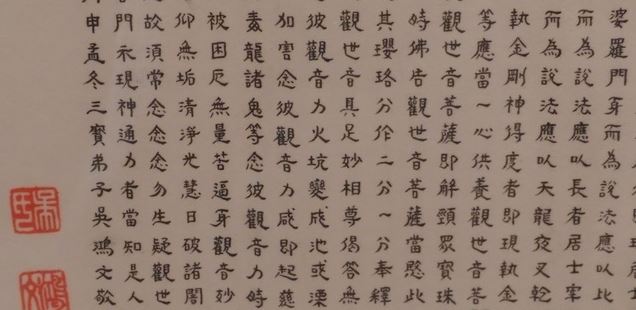 婆羅門身而為說法應以比
而為說法應以長者居士宰
而為說法應以天龍夜叉乾
執金剛神得度者即現執金
等應當一心供養觀世音菩
觀世音菩薩即解頸眾寶珠
時佛告觀世音菩薩當愍此
其瓔珞分作二分一分奉釋
觀世音具足妙相尊偈答無
彼觀音力火坑變成池或漂
加害念彼觀音力咸即起慈
毒龍諸鬼等念彼觀音力時
被困厄無量苦逼身觀音妙
仰無垢清淨光慧日破諸闇
故須常念念念勿生疑觀世
門示現神通力者當知是人
申孟冬三寶弟子吳鴻文敬